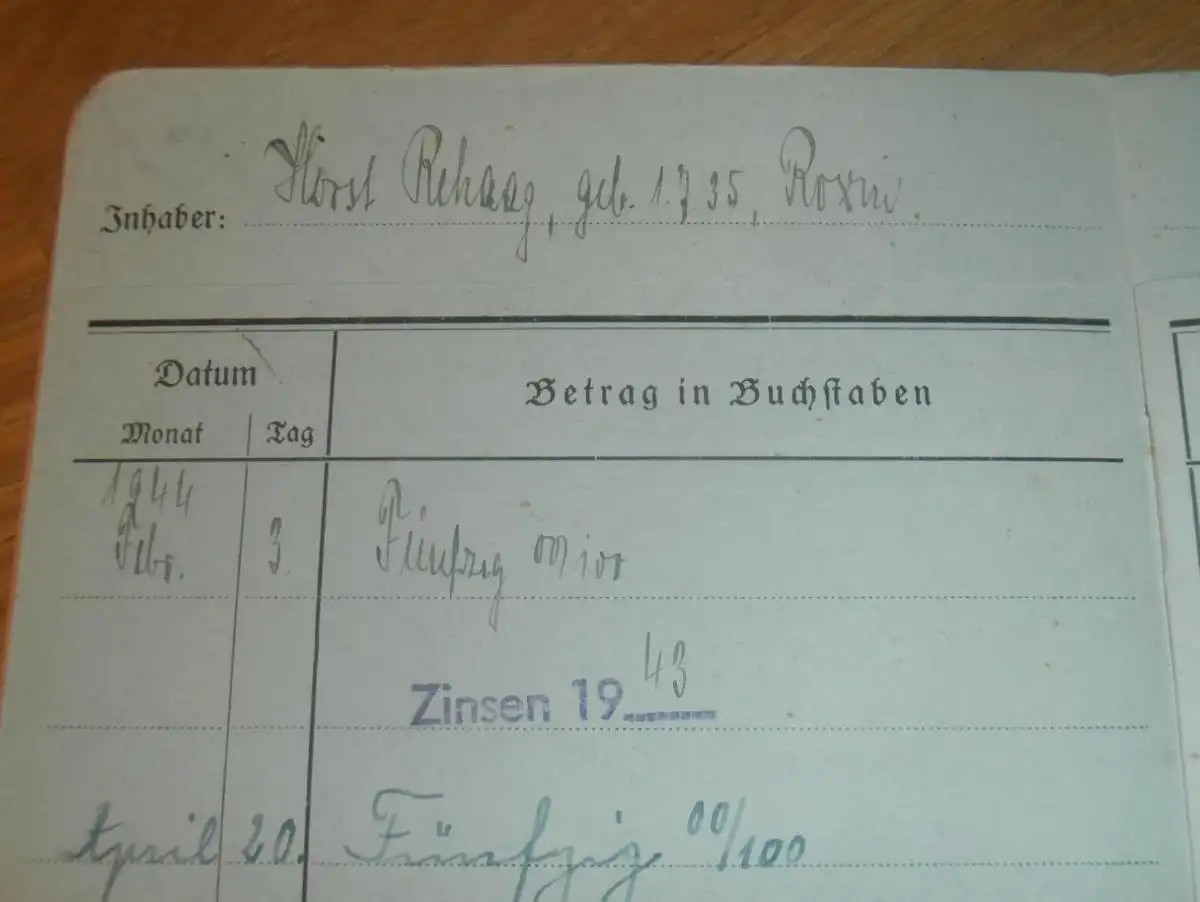 Inhaber: Horst Rehaag, geb. 1.7.35, Roxin.
Datum
Betrag in Buchstaben
Monat Tag
1944
Febr. 3. Fünfzig 00/100
Zinsen 1943
April 20. Fünfzig 00/100